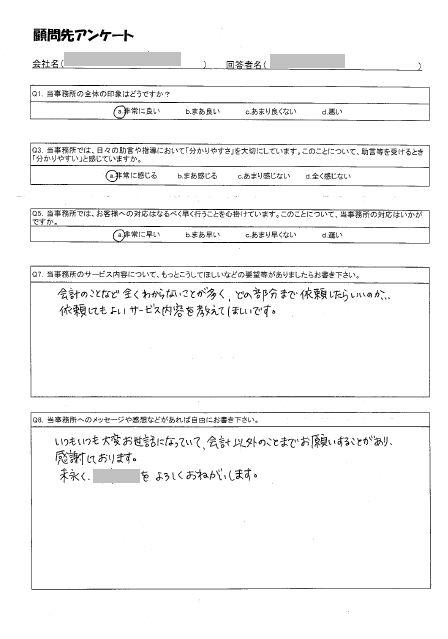 顧問先アンケート
会社名( ) 回答者名( )
Q1. 当事務所の全体の印象はどうですか?
a.非常に良い b.まあ良い c.あまり良くない d.悪い
Q3. 当事務所では、日々の助言や指導において「分かりやすさ」を大切にしています。このことについて、助言等を受けるとき
「分かりやすい」と感じていますか。
a.非常に感じる b.まあ感じる c.あまり感じない d.全く感じない
Q5. 当事務所では、お客様への対応はなるべく早く行うことを心掛けています。このことについて、当事務所の対応はいかが
ですか。
a.非常に早い b.まあ早い c.あまり早くない d.遅い
Q7. 当事務所のサービス内容について、もっとこうしてほしいなどの要望等がありましたらお書き下さい。
会計のことなど全くわからないことが多く、どの部分まで依頼したらいいのか...
依頼してもよいサービス内容を教えてほしいです。
Q8. 当事務所へのメッセージや感想などがあれば自由にお書き下さい。
いつもいつも大変お世話になっていて、会計以外のことまでお願いすることがあり、
感謝しております。
末永く、 をよろしくおねがいします。